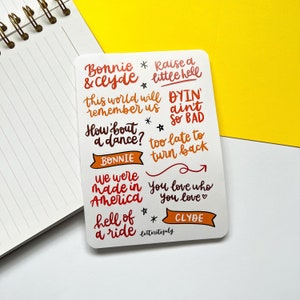 Bonnie
& Clyde
Raise a
little hell
this world will
remember us
DYIN'
ain't
SO BAD
How 'bout
a dance?
BONNIE
too late to
turn back
we were
made in
America
You love who
you love
hell of
a ride
CLYDE